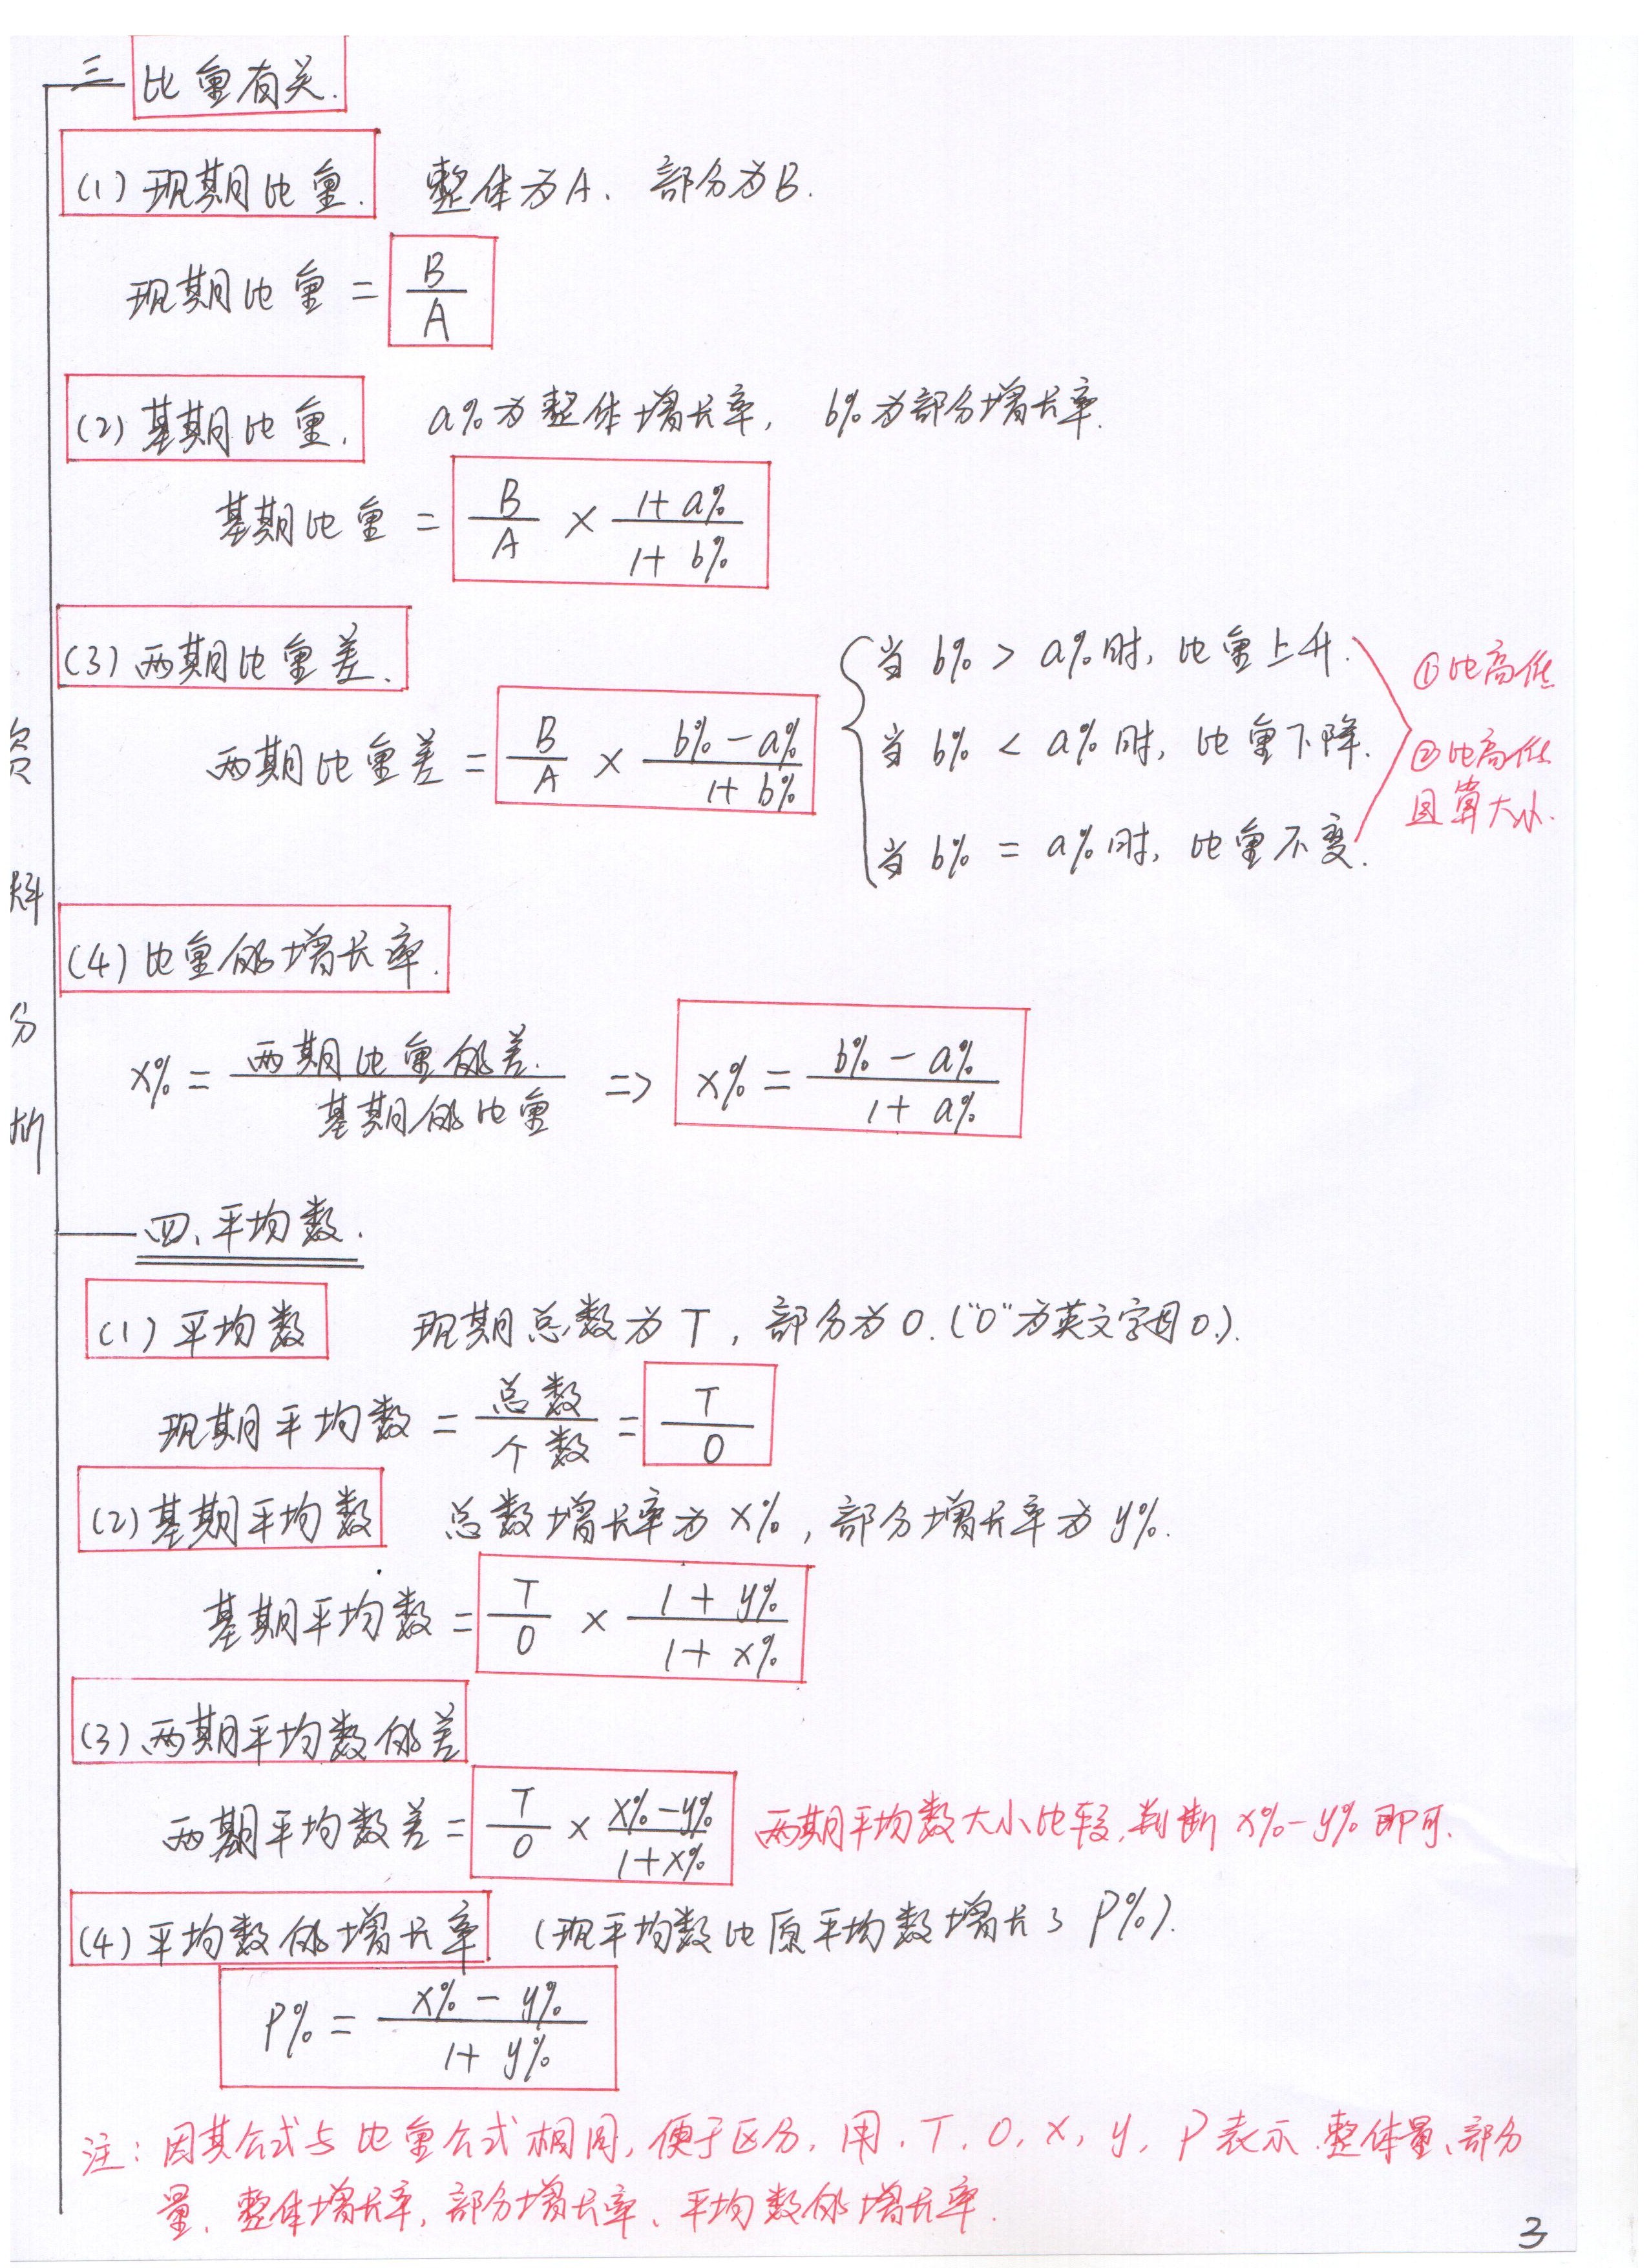 三 比重有关.
(1) 现期比重. 整体为A、部分为B.
现期比重 = B/A
(2) 基期比重. a%为整体增长率, b%为部分增长率.
基期比重 = B/A × (1+a%)/(1+b%)
(3) 两期比重差.
两期比重差 = B/A × (b%-a%)/(1+b%)
当 b% > a% 时, 比重上升.
当 b% < a% 时, 比重下降.
当 b% = a% 时, 比重不变.
①比高低
②比高低
且算大小.
资料分析
(4) 比重的增长率.
x% = 两期比重的差/基期的比重 => x% = (b%-a%)/(1+a%)
四、平均数.
(1) 平均数 现期总数为T, 部分为O.("O"为英文字母O.).
现期平均数 = 总数/个数 = T/O
(2) 基期平均数 总数增长率为x%, 部分增长率为y%.
基期平均数 = T/O × (1+y%)/(1+x%)
(3) 两期平均数的差
两期平均数差 = T/O × (x%-y%)/(1+x%) 两期平均数大小比较,判断 x%-y% 即可.
(4) 平均数的增长率 (现平均数比原平均数增长了P%).
P% = (x%-y%)/(1+y%)
注: 因其公式与比重公式相同, 便于区分, 用. T. O. x, y, P 表示.整体量、部分
量、整体增长率, 部分增长率、平均数的增长率.
3